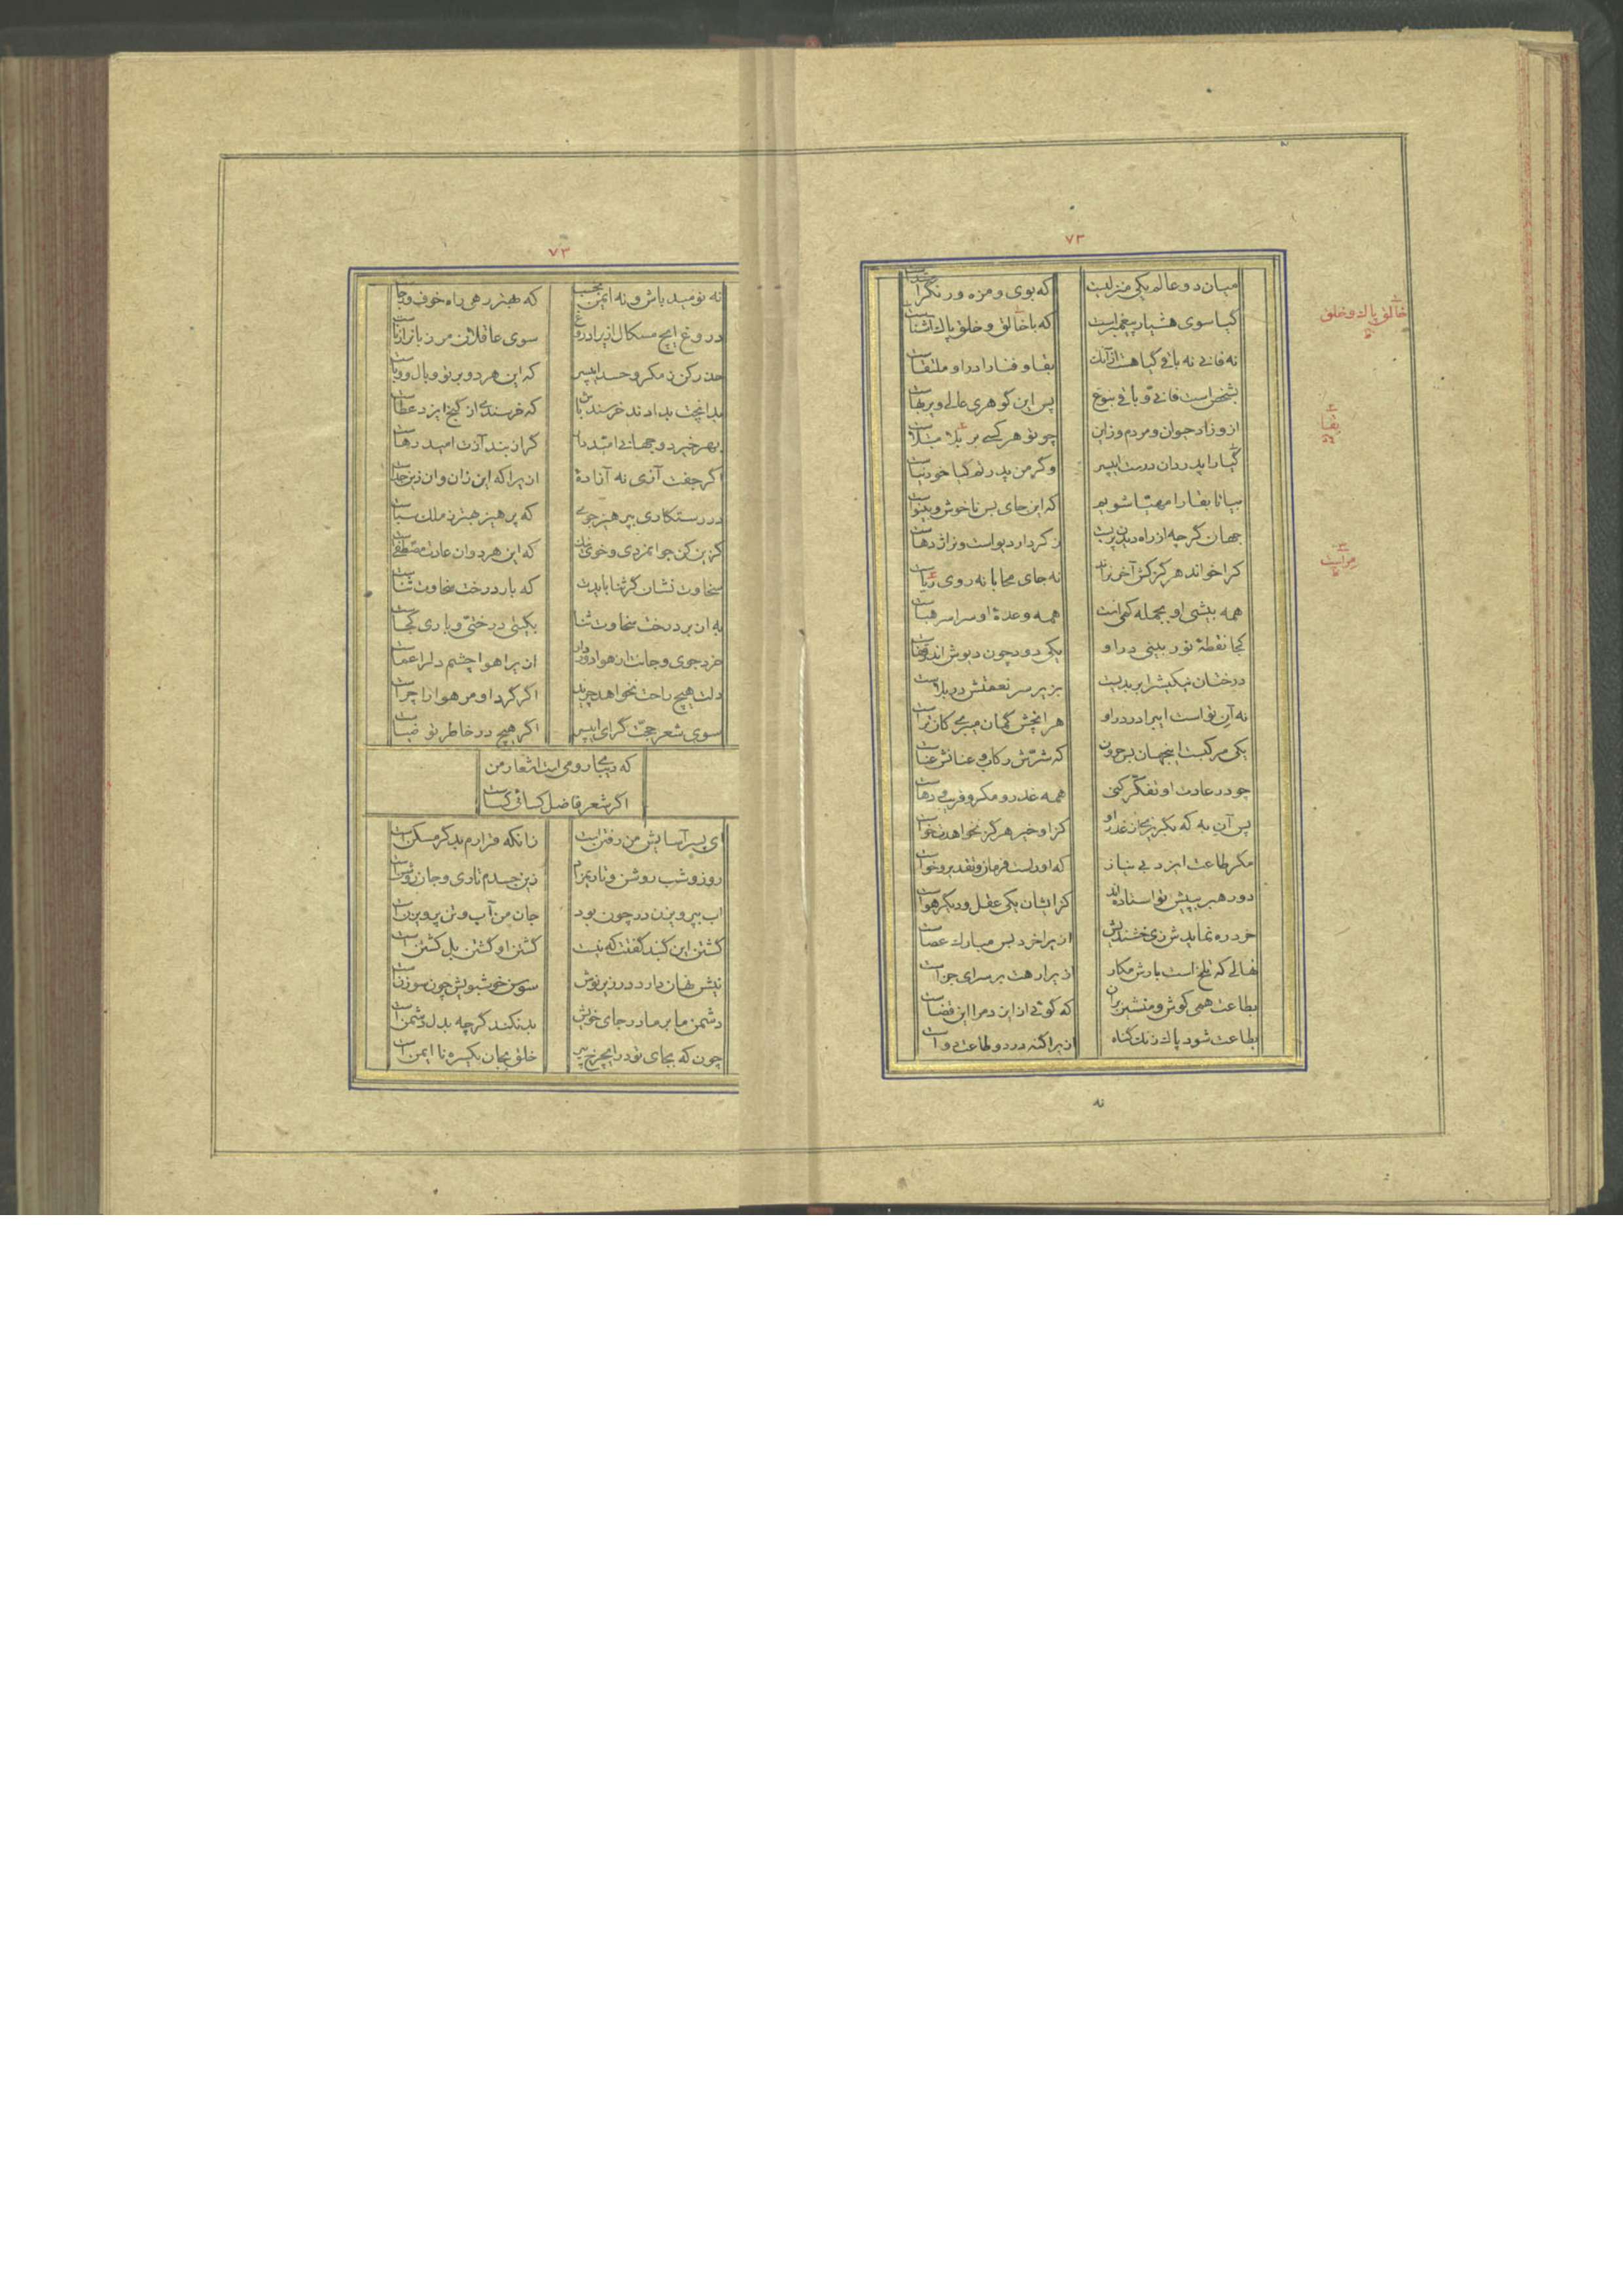 ۷۳
میان دو عالم یکی منزلیت که بوی و مزه و رنگرا
کیا سوی هشیار پیغمبراست که با خالق و خلق پاک آشناست
خالق پاک و خلق
نه فانی نه باقی کیاهت از آنک بقا و فنا را درا و ملتقاست
بشخص است فانی و باقی بنوع پس این کوهری عالی و پربهاست
بقا
ازو زاد حیوان و مردم وز این چو تو هر کسی بر بلا مبتلاست
کیا را پدر دان درست ای پسر وکر من پدرتم کیا خود نیاست
بیا تا بقا را مهیا شویم که این جای بس ناخوش و بینواست
جهان کرچه از راه دیدن پریست ز کردار دیو است و نر اژدهاست
مراست
کرا خواند هرکز کش آخر نراند نه جای محابا نه روی ریاست
همه بیشی او بجمله کمی است همه وعدهٔ او سراسر هباست
کجا نقطهٔ نور بینی در او یکی دود چون دیوش اندر قفاست
درختان نیکیش را بر بدیست بزیر سر نعمتش در بلاست
نه آن تو است ای برادر درو هر انچش کمان میبری کان تراست
یکی مرکبست اینجهان بس حرون که شرش رکاب و عنانش عناست
چو در عادت او تفکر کنی همه غدر و مکر و فریب و دهاست
پس آن به که بکریزی از غدر او کز او خیر هرکز نخواهدت خواست
مکر طاعت ایزد بی نیاز که اوراست فرمان و تقدیر و خواست
دو رهبر بپیش تو استاده اند کز ایشان یکی عقل و دیکر هواست
خرد ره نمایدش زی خشندیش ازیرا خرد بس مبارک عصاست
نهالی که تلخ است بارش مکار ازیرا رهت بر سرای جزاست
بطاعت همی کوش و منشین بران که کوئی از ایزد مرا این قضاست
بطاعت شود پاک زنک کناه ازیرا کنه درد و طاعت دواست
نه
۷۳
نه نومید باش و نه ایمن بخسب که بهتر رهی راه خوف و رجاست
دروغ ایچ مسکال ازیرا دروغ سوی عاقلان مر زبانرا زناست
حذر کن ز مکر و حسد ای پسر که این هر دو بر تو وبال و وباست
بدانچت بدادند خرسند باش که خرسندی از کنج ایزد عطاست
بهر خیر دو جهانی امید دار کر از بند آزت امید رهاست
اکر جفت آزی نه آزادهٔ ازیرا که این زان و ان زین جداست
در رستکاری بپرهیز جوی که پرهیز بهترین ملک سباست
کزین کن جوانمردی و خوی نیک که این هر دوان عادت مصطفاست
سخاوت نشان کر ثنا بایدت که بار درخت سخاوت ثناست
به از بر درخت سخاوت ثنا بکیتی درختی و باری کجاست
خرد جوی و جانت از هوا دور دار ازیرا هوا چشم دلرا عماست
دلت هیچ راحت نخواهد چرید اکر کرد او مر هوا را چراست
سوی شعر حجت کرای ای پسر اکر هیچ در خاطر تو ضیاست
که دیبای رومی است اشعار من
اکر شعر فاضل کسائی کساست
ای پسر آسایش من رفتن است زانکه قرارم بد کر مسکن است
روز و شب روشن و تاریم زین جسدم تاری و جان روشن است
اب بپرویزن در چون بود جان من آب و تن پرویزن است
کشتن این کنبد کفتت که نیست کشتن او کشتن بل کشتن است
نیش نهان دارد در زیر نوش سوسن خوشبویش چون سوزن است
دشمن ما بر مادر جای خویش بد نکند کرچه بد دشمن است
چون که بجای تو در این چرخ پیر خلق بجان یکسره نا ایمن است